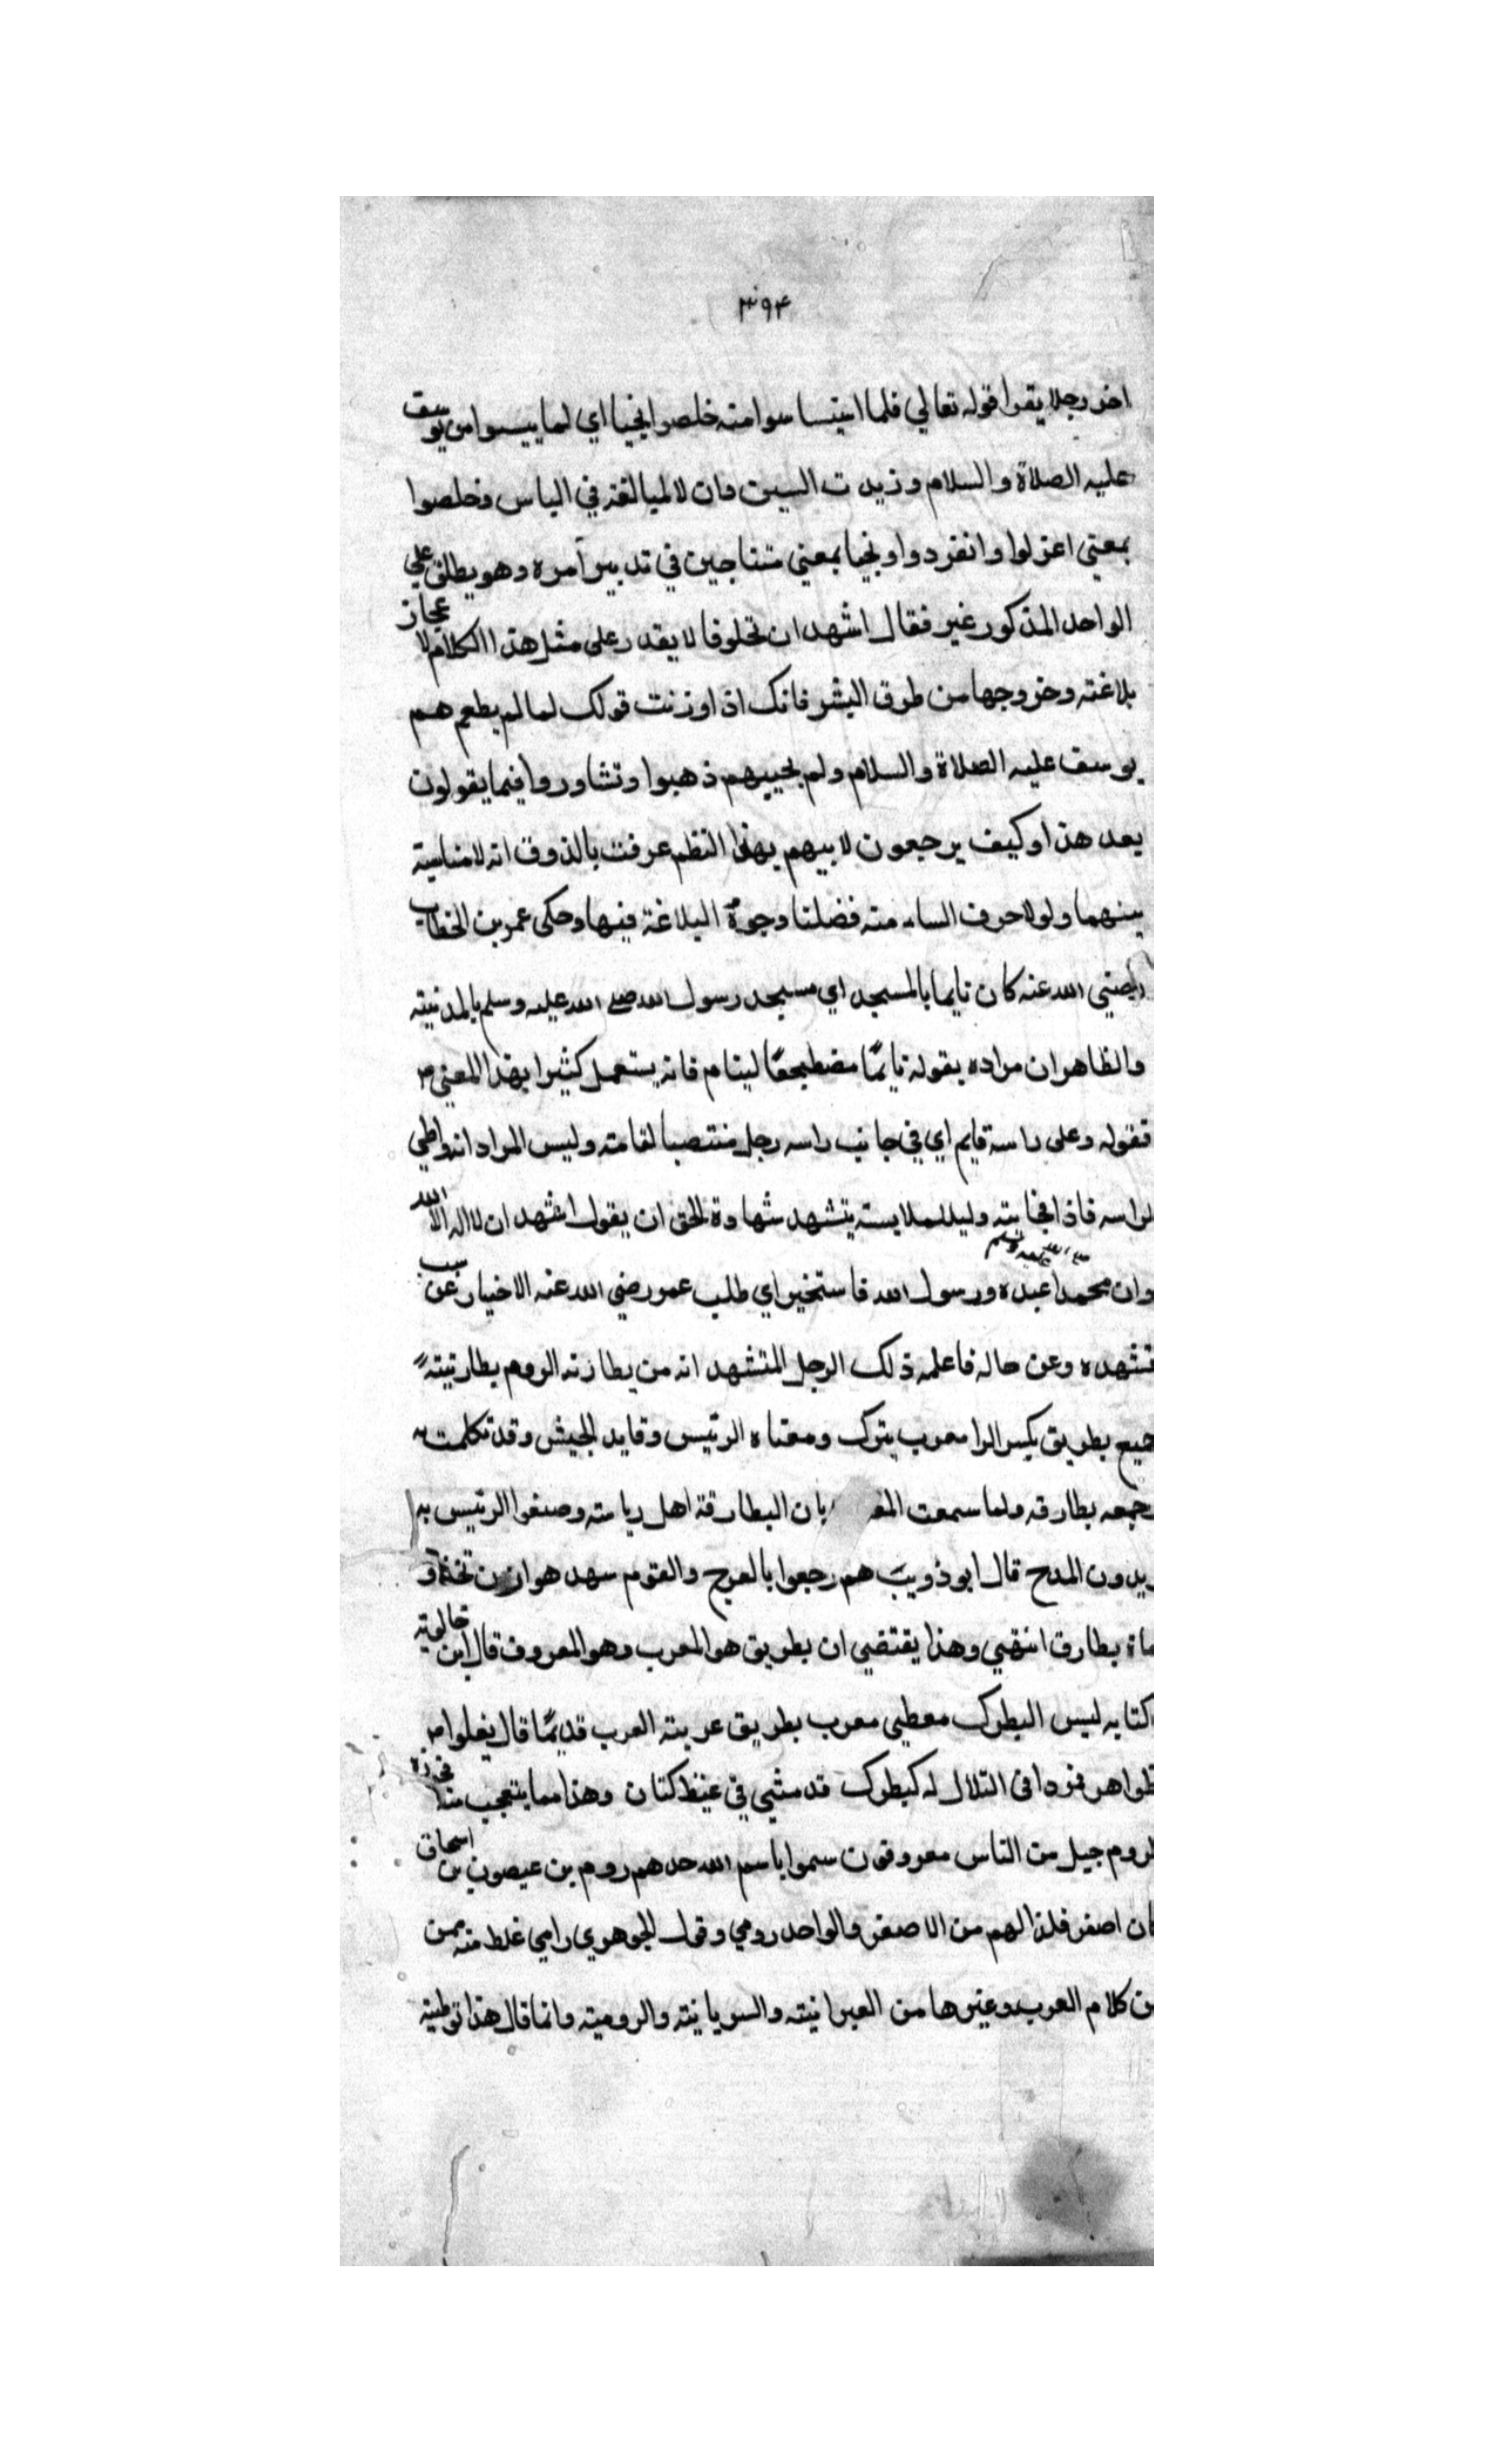 ٣٩۴
اخر رجلا يقرا قوله تعالي فلما استياسوا منه خلصوا نجيا اي لما ييسوا من يوسف
عليه الصلاة والسلام وزيدت السين وان لا لمبالغة في الياس وخلصوا
بمعني اعتزلوا وانفردوا ونجيا بمعني متناجين في تدبير امره وهو يطلق علي
الواحد المذكور غير فقال اشهد ان مخلوقا لا يقدر على مثل هذا الكلام لا عجاز
بلاغته وخروجها من طوق البشر فانك اذا وزنت قولك لما لم يطعم هم
يوسف عليه الصلاة والسلام ولم يجيبهم ذهبوا وتشاوروا فيما يقولون
بعد هذا وكيف يرجعون لابيهم بهذا النظم عرفت بالذوق انه لا مناسبة
بينهما ولولا حرف الساء منه فضلنا وجوه البلاغة فيها وحكى عمر بن الخطاب
رضي الله عنه كان نايما بالمسجد اي مسجد رسول الله صلى الله عليه وسلم بالمدنيته
والظاهر ان مراده بقوله نايمًا مضطجعًا لينام فانه يستعمل كثيرا بهذا المعني م
فقوله وعلى راسه قايم اي في جانب راسه رجل منتصبا لقامته وليس المراد انه واطي
لراسه فاذا فجانيته وليد لملابسته يتشهد شهادة الحق ان يقول اشهد ان لا اله الا الله
وان محمدا عبده ورسول الله صلى الله عليه وسلم فاستخبر اي طلب عمر رضي الله عنه الاخبار عن سبب
تشهده وعن حاله فاعلمه ذلك الرجل المتشهد انه من بطارنه الروم بطارتيته
جيع بطريق بكسر الرا معرب بترك ومعناه الرئيس وقايد الجيش وقد تكلمت به
جمعه بطارقه ولما سمعت بان البطارقة اهل رياسته وصفوا الرئيس به
يريدون المدح قال ابو ذويب هم رجعوا بالعرج والقوم سهد هوازن
ماة بطارق انتهي وهذا يقتضي ان بطريق هو المعرب وهو المعروف قال ابن خالويه
كتابه ليس البطرك معطي معرب بطريق عربته العرب قديمًا قال يغلوا م
ظواهر فرد افى التلال له كبطرك قد مشي في غيظ كتان وهذا مما يتعجب منه
لروم جيل من الناس معروفون سموا باسم الله حدهم روم بن عيصون بن اسحاق
ان اصفر فلذا لهم من الاصفر والواحد رومي وقول الجوهري رامي غلط منه ممن
من كلام العرب وغيرها من العبرانيته والسريانيته والروميته وانما قال هذا توطيته